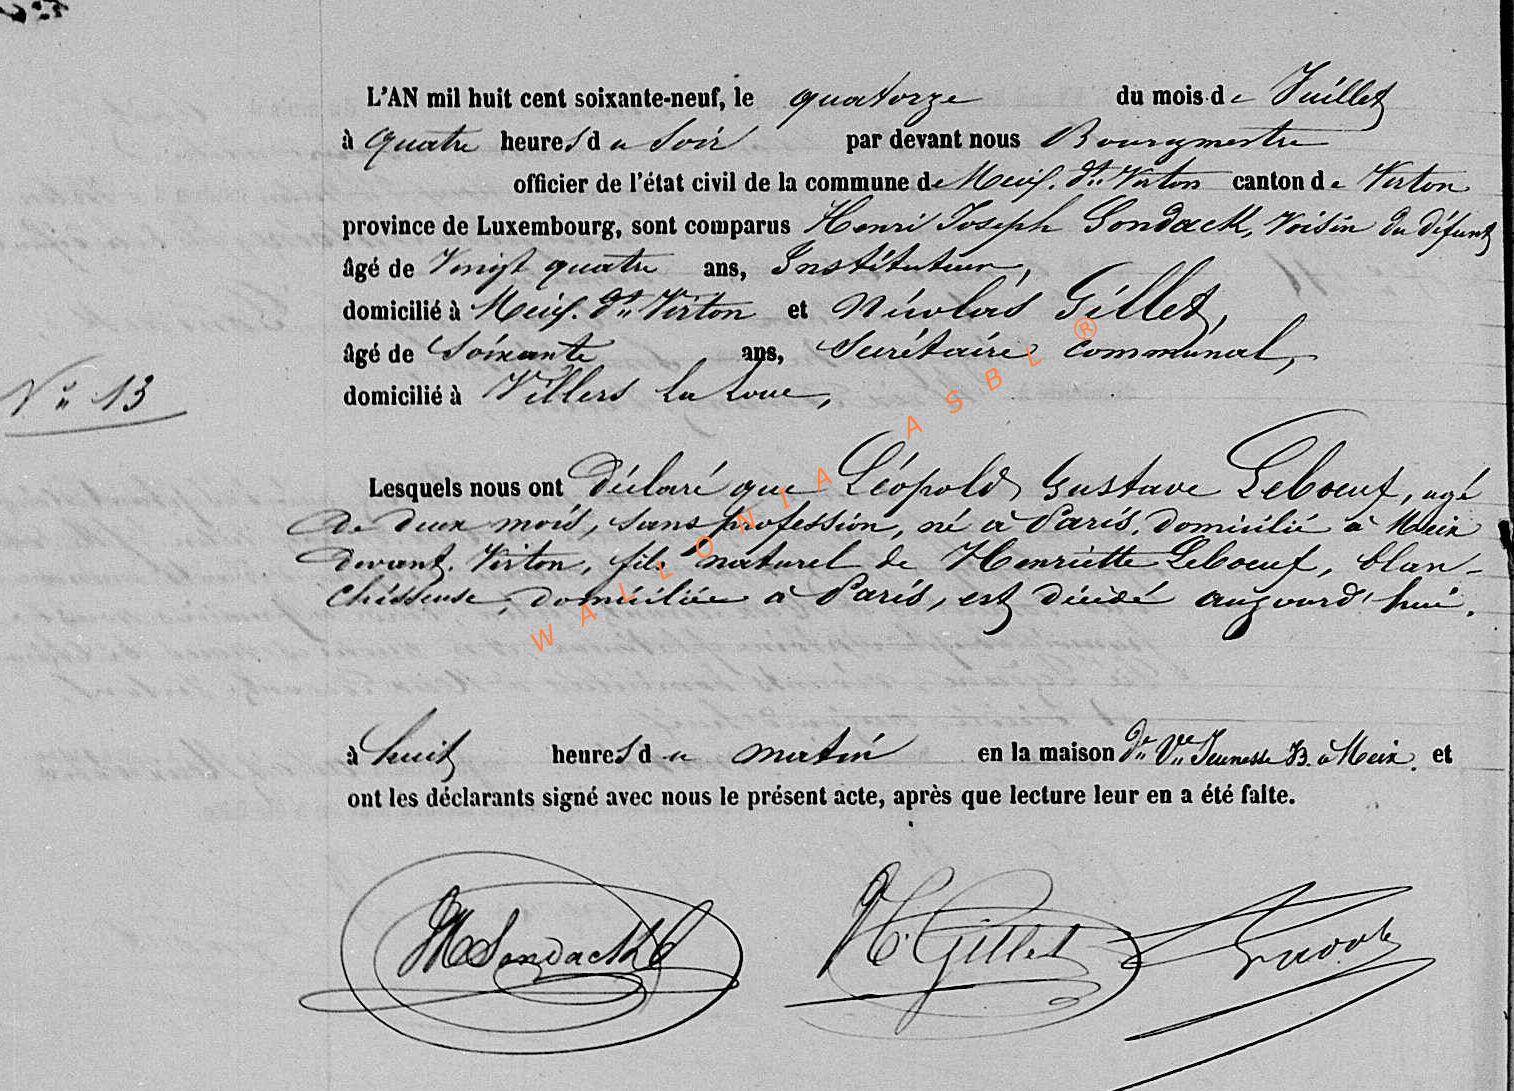 L'AN mil huit cent soixante-neuf, le quatorze du mois de Juillet
à quatre heures du Soir par devant nous Bourgmestre
officier de l'état civil de la commune de Meix. dt. Virton canton de Virton
province de Luxembourg, sont comparus Henri Joseph Gondack, Voisin du défunt
âgé de Vingt quatre ans, Instituteur,
domicilié à Meix. dt. Virton et Nicolas Gillet,
âgé de Soixante ans, Secrétaire communal,
N° 13
domicilié à Villers la loue,
Lesquels nous ont déclaré que Léopold Gustave Leboeuf, agé
de deux mois, sans profession, né à Paris, domicilié à Meix
devant. Virton, fils naturel de Henriette Leboeuf, blan-
chisseuse, domiciliée à Paris, est décédé aujourd'hui.
à huit heures du matin en la maison de Ve. Jeunesse B. à Meix. et
ont les déclarants signé avec nous le présent acte, après que lecture leur en a été faite.
N. Gillet
WALLONIA ASBL ®